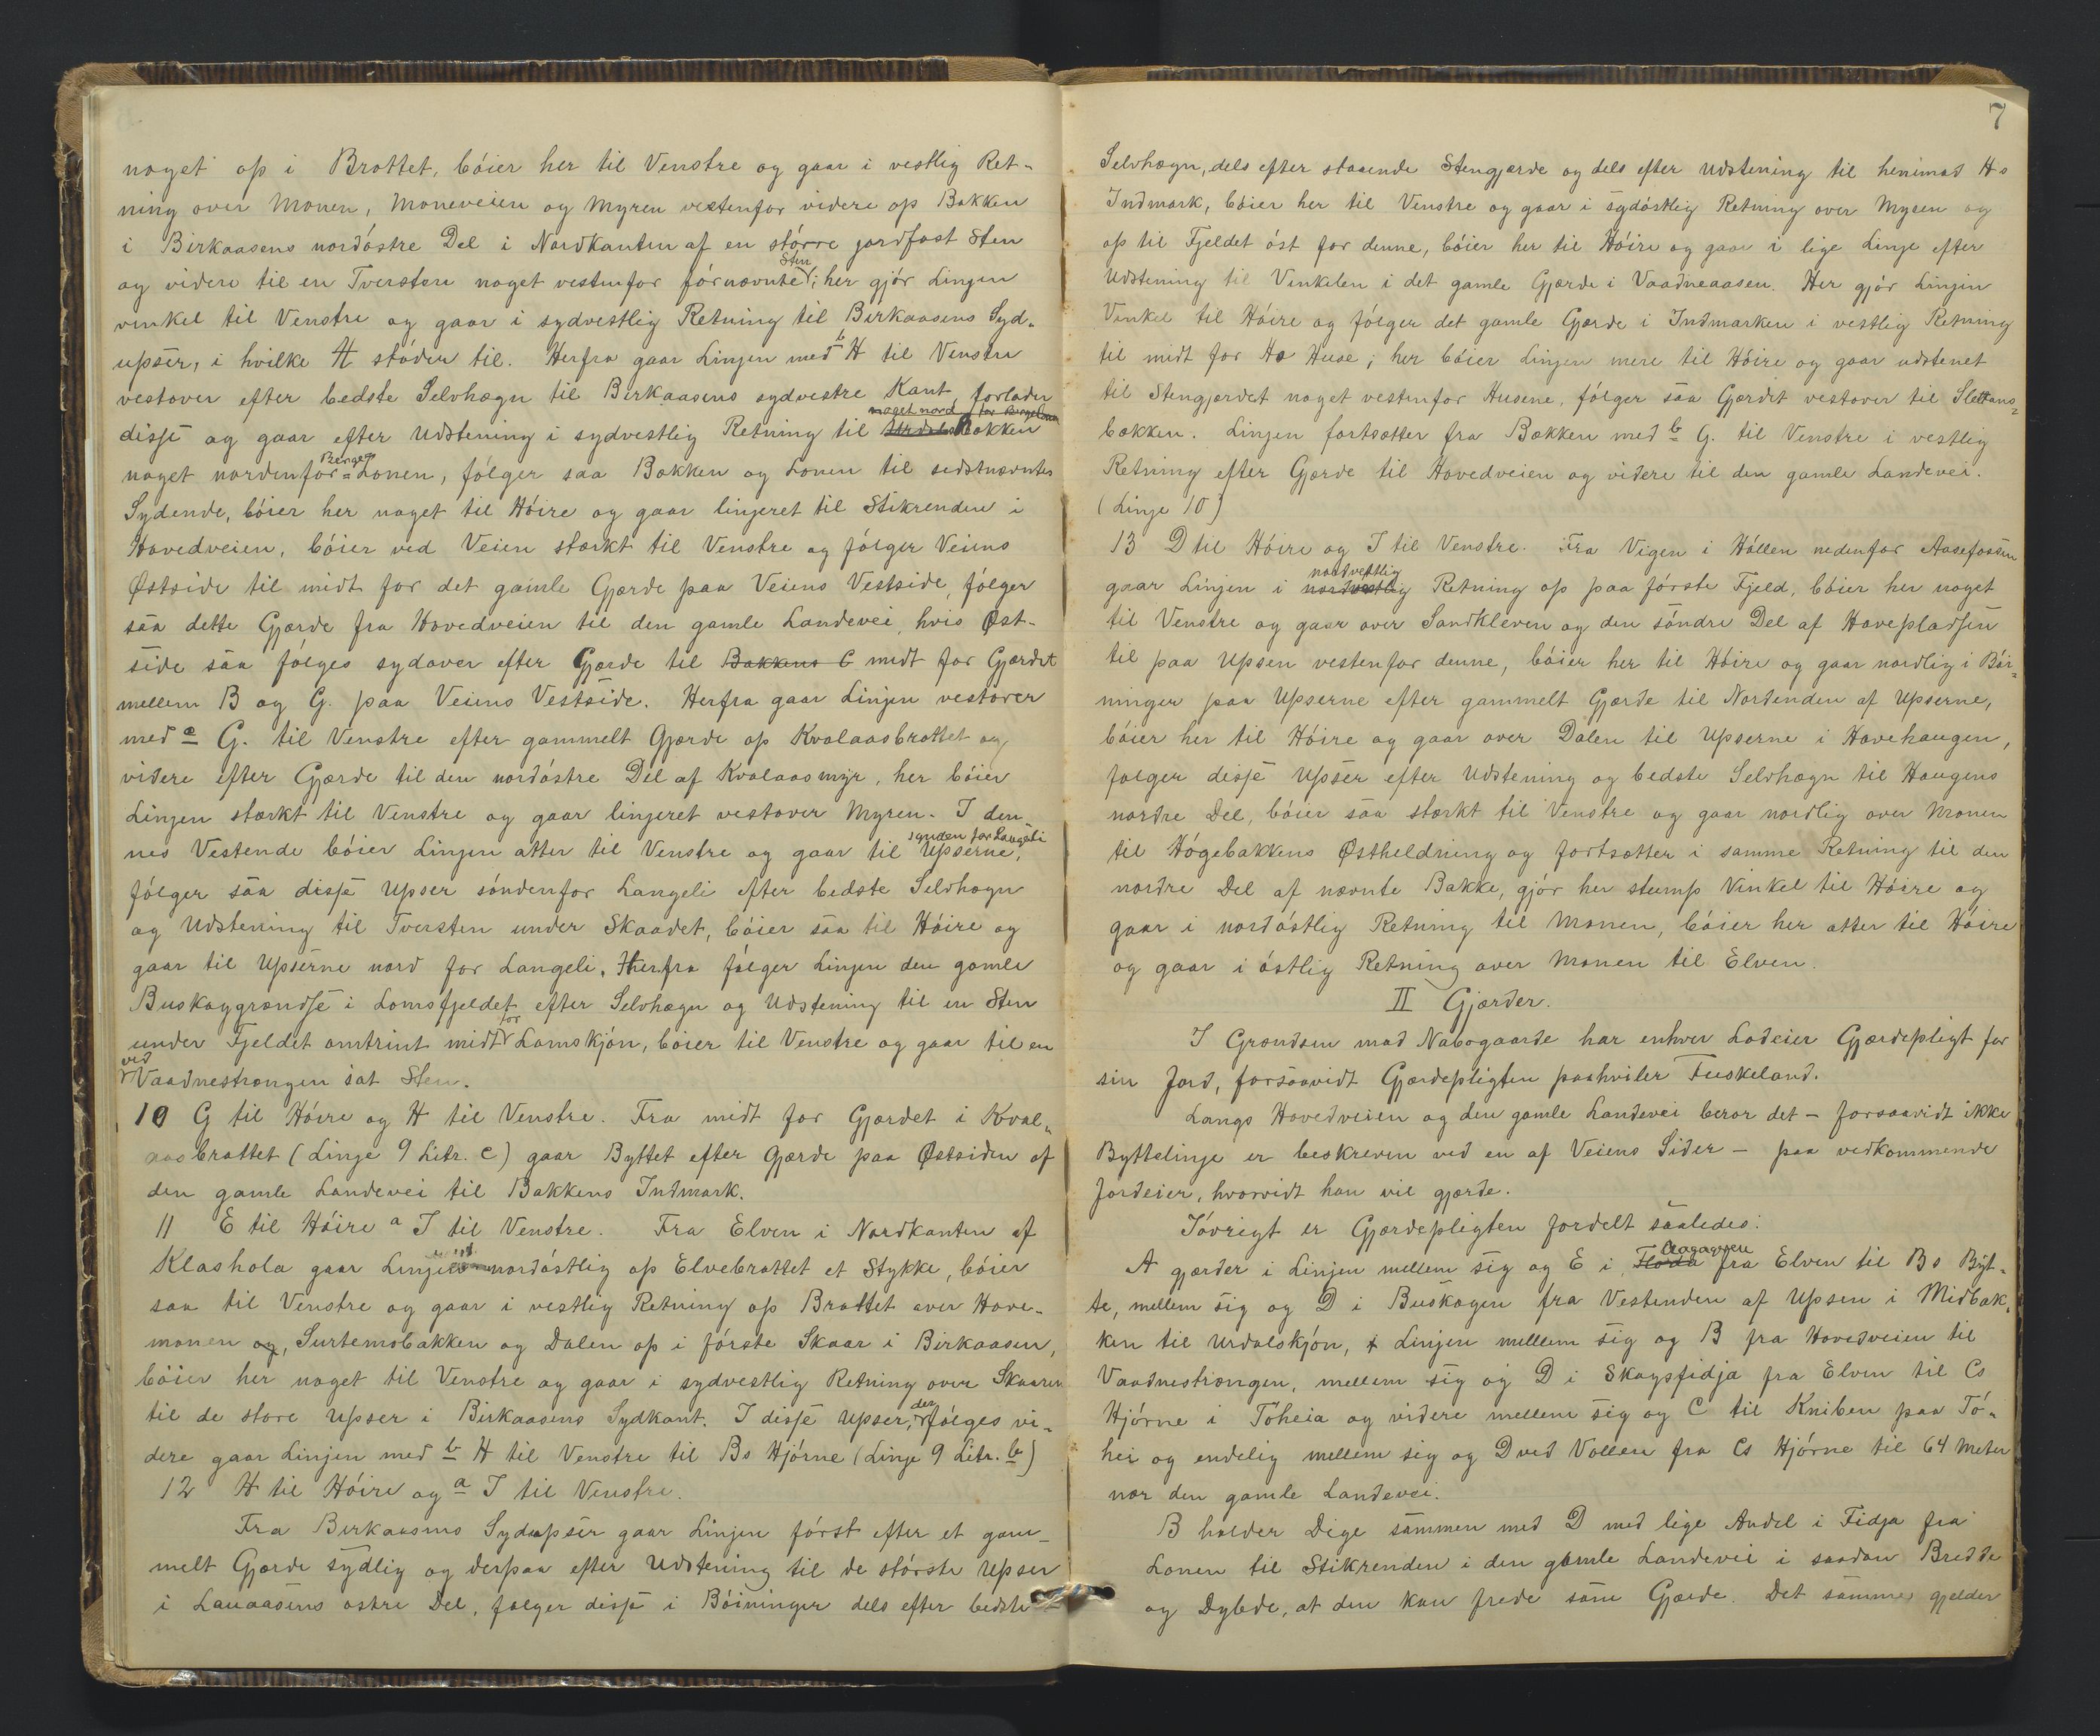 noget op i Brattet, bóier her til Venstre og gaar i vestlig Ret-
ning over Monen, Moneveien og Myren vestenfor videre op Bakken
i Birkaasens nordóstre Del i Nordkanten af en stórre jordfast Sten
og videre til en Tversten noget vestenfor fórnævnte Sten; her gjór Linjen
vinkel til Venstre og gaar i sydvestlig Retning til Birkaasens Syd-
upser, i hvilke H stóder til. Herfra gaar Linjen med b H til Venstre
vestover efter bedste Selvhægn til Birkaasens sydvestre Kant, forlader
disse og gaar efter Udstening i sydvestlig Retning til Bækken noget nord for
noget nordenfor Berge-Lonen, fólger saa Bækken og Lonen til sidstnævntes
Sydende, bóier her noget til Hóire og gaar linjeret til Stikrenden i
Hovedveien, bóier ved Veien stærkt til Venstre og fólger Veiens
Østside til midt for det gamle Gjærde paa Veiens Vestside, fólger
saa dette Gjærde fra Hovedveien til den gamle Landevei, hvis Øst-
side saa fólges sydover efter Gjærde til Bakkens C midt for Gjærdet
mellem B og G. paa Veiens Vestside. Herfra gaar Linjen vestover
med c G. til Venstre efter gammelt Gjærde op Kvalaasbrattet og
videre efter Gjærde til den nordóstre Del af Kvalaasmyr, her bóier
Linjen stærkt til Venstre og gaar linjeret vestover Myren. I den-
nes Vestende bóier Linjen atter til Venstre og gaar til Upserne sónden for Langeli,
fólger saa disse Upser sóndenfor Langeli efter bedste Selvhægn
og Udstening til Tversten under Skaadet, bóier saa til Hóire og
gaar til Upserne nord for Langeli. Herfra fólger Linjen den gamle
Buskoggrændse i Lomsfjeldet efter Selvhægn og Udstening til en Sten
under Fjeldet omtrint midt for Lomskjón, bóier til Venstre og gaar til en
ved Vaadnestrængen sat Sten.
10 G til Hóire og H til Venstre. Fra midt for Gjærdet i Kval-
aasbrattet (Linje 9 Litr. c) gaar Byttet efter Gjærde paa Østsiden af
den gamle Landevei til Bakkens Indmark.
11 E til Hóire a I til Venstre. Fra Elven i Nordkanten af
Klashola gaar Linjen nordóstlig op Elvebrattet et Stykke, bóier
saa til Venstre og gaar i vestlig Retning op Brattet over Have-
monen og, Surtemsbakken og Dalen op i fórste Skaar i Birkaasen,
bóier her noget til Venstre og gaar i sydvestlig Retning over Skaaren
til de store Upser i Birkaasens Sydkant. I disse Upser, der fólges vi-
dere gaar Linjen med b H til Venstre til Bs Hjórne (Linje 9 Litr. b)
12 H til Hóire og a I til Venstre.
Fra Birkaasens Sydupser gaar Linjen fórst efter et gam-
melt Gjærde sydlig og derpaa efter Udstening til de stórste Upser
i Lauaasens ostre Del, fólger disse i Bóininger dels efter bedste
7
Selvhægn, dels efter staaende Stengjærde og dels efter Udstening til henimod Hs
Indmark, bóier her til Venstre og gaar i sydóstlig Retning over Myren og
op til Fjeldet óst for denne, bóier her til Hóire og gaar i lige Linje efter
Udstening til Vinkelen i det gamle Gjærde i Vaadneaasen. Her gjór Linjen
Vinkel til Hóire og fólger det gamle Gjærde i Indmarken i vestlig Retning
til midt for Hs Huse; her bóier Linjen mere til Hóire og gaar udstenet
til Stengjærdet noget vestenfor Husene, fólger saa Gjærdet vestover til Slettans-
bækken. Linjen fortsætter fra Bækken med b G. til Venstre i vestlig
Retning efter Gjærde til Hovedveien og videre til den gamle Landevei.
(Linje 10)
13 D til Hóire og I til Venstre. Fra Vigen i Hóllen nedenfor Aasefossen
gaar Linjen i nordvestlig Retning op paa fórste Fjeld, bóier her noget
til Venstre og gaar over Sandkleven og den sóndre Del af Havepladsen
til paa Upsen vestenfor denne, bóier her til Hóire og gaar nordlig i Bói-
ninger paa Upserne efter gammelt Gjærde til Nordenden af Upserne,
bóier her til Hóire og gaar over Dalen til Upserne i Havehaugen,
fólger disse Upser efter Udstening og bedste Selvhægn til Haugens
nordre Del, bóier saa stærkt til Venstre og gaar nordlig over Monen
til Hógebakkens Østheldning og fortsætter i samme Retning til den
nordre Del af nævnte Bakke, gjór her stump Vinkel til Hóire og
gaar i nordóstlig Retning til Monen, bóier her atter til Hóire
og gaar i óstlig Retning over Monen til Elven.
II Gjærder.
I Grændsen mod Nabogaarde har enhver Lodeier Gjærdepligt for
sin Jord, forsaavidt Gjærdepligten paahviler Fuskeland.
Langs Hovedveien og den gamle Landevei beror det – forsaavidt ikke
Byttelinje er beskreven ved en af Veiens Sider – paa vedkommende
Jordeier, hvorvidt han vil gjærde.
Ióvrigt er Gjærdepligten fordelt saaledes:
A gjærder i Linjen mellem sig og E i fra Elven til Bs Byt-
te, mellem sig og D i Buskogen fra Vestenden af Upsen i Midbak-
ken til Urdalskjón, i Linjen mellem sig og B fra Hovedveien til
Vaadnestrængen, mellem sig og D i Skogsfidja fra Elven til Cs
Hjórne i Tóheia og videre mellem sig og C til Kniben paa Tó-
hei og endelig mellem sig og D ved Vollen fra Cs Hjórne til 64 Meter
nær den gamle Landevei.
B holder Dige sammen med D med lige Andel i Fidja fra
Lonen til Stikrenden i den gamle Landevei i saadan Bredde
og Dybde, at den kan frede som Gjærde. Det samme gjelder